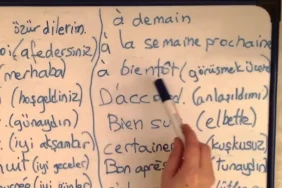 özür dilerim.
(afedersiniz)
(merhaba)
(hoşgeldiniz)
(günaydın)
(iyi akşamlar)
(iyi geceler)
à demain
à la semaine prochaine
à bientôt (görüşmek üzere
D'accord. (anlaşıldımı)
Bien su (elbette)
certaine (kuşkusuz,
Bon après tünaydın)